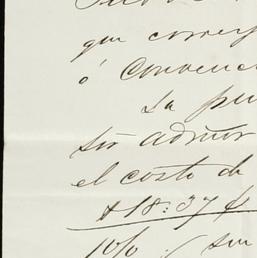 que corresp
ó Convenci
La pu
Sor admor
el costo de
$18:37 ¢
10%